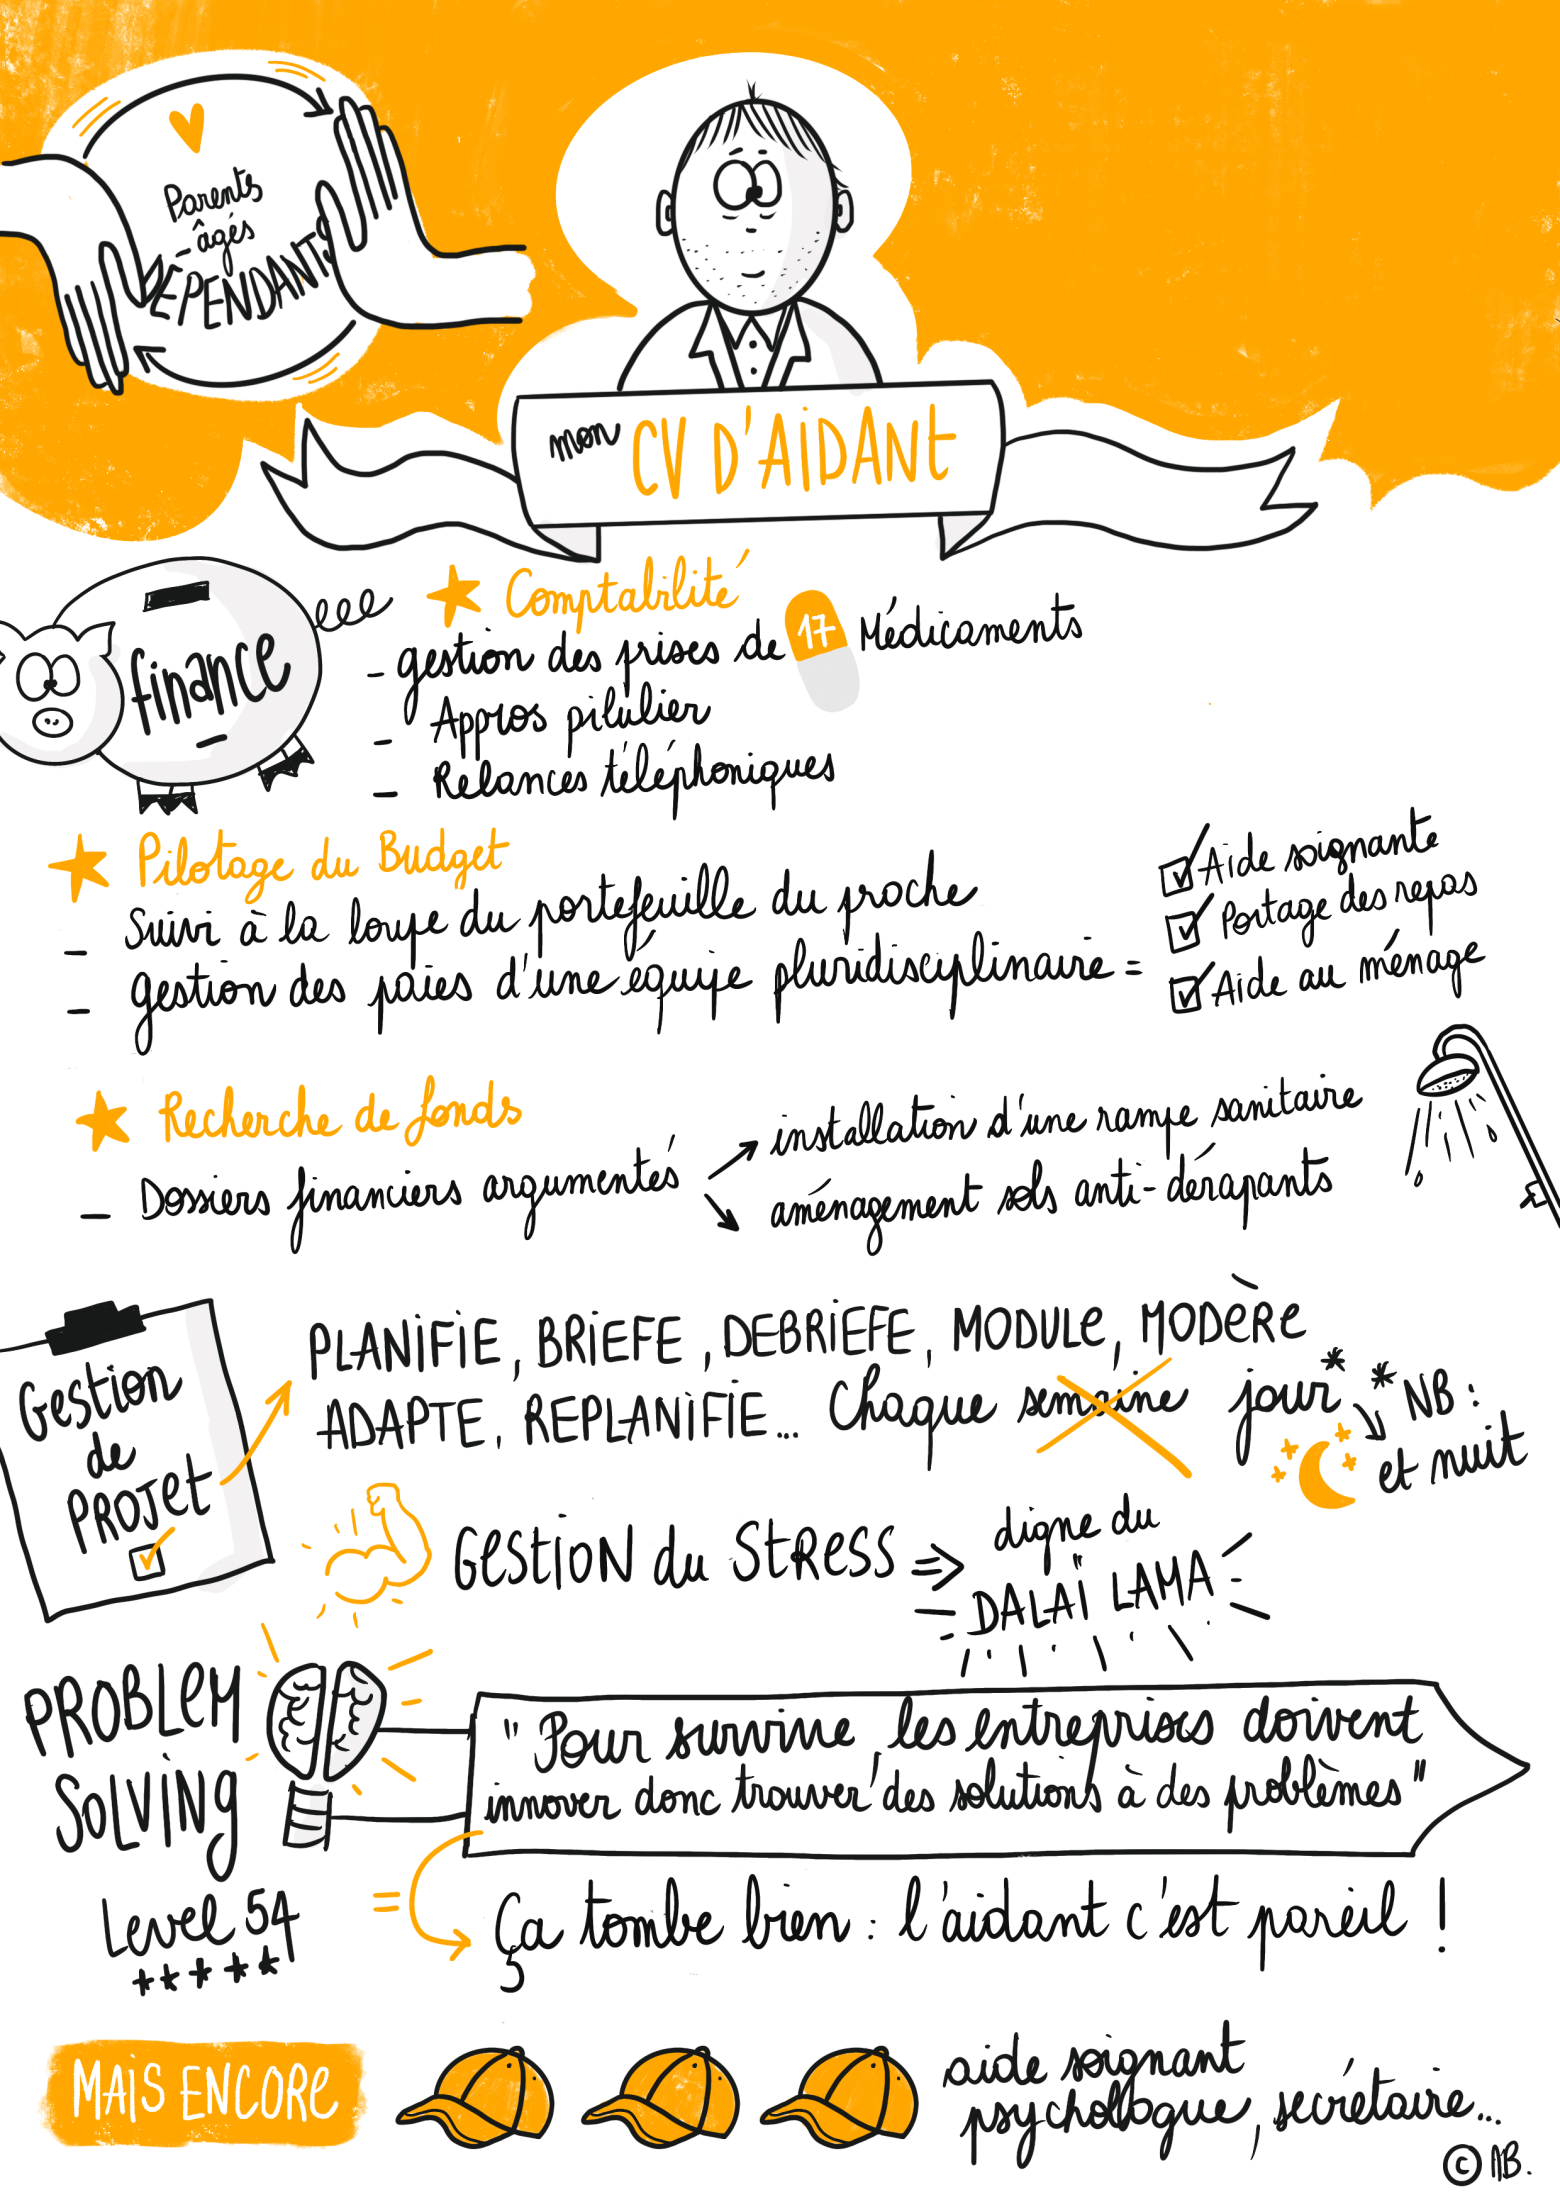 Parents
âgés
DÉPENDANTS
mon CV D'AIDANT
finance
Comptabilité
- gestion des prises de 17 Médicaments
- Appros pilulier
- Relances téléphoniques
Pilotage du Budget
- Suivi à la loupe du portefeuille du proche
- gestion des paies d'une équipe pluridisciplinaire =
Aide soignante
Portage des repas
Aide au ménage
Recherche de fonds
- Dossiers financiers argumentés
installation d'une rampe sanitaire
aménagement sols anti-dérapants
Gestion
de
PROJET
PLANIFIE, BRIEFE, DEBRIEFE, MODULE, MODÈRE
ADAPTE, REPLANIFIE... Chaque semaine jour*
* NB :
et nuit
GESTION du STRESS => digne du
DALAÏ LAMA
PROBLEM
SOLVING
Level 54
"Pour survivre, les entreprises doivent
innover donc trouver des solutions à des problèmes"
= Ça tombe bien : l'aidant c'est pareil !
MAIS ENCORE
aide soignant
psychologue, secrétaire...
© AB.